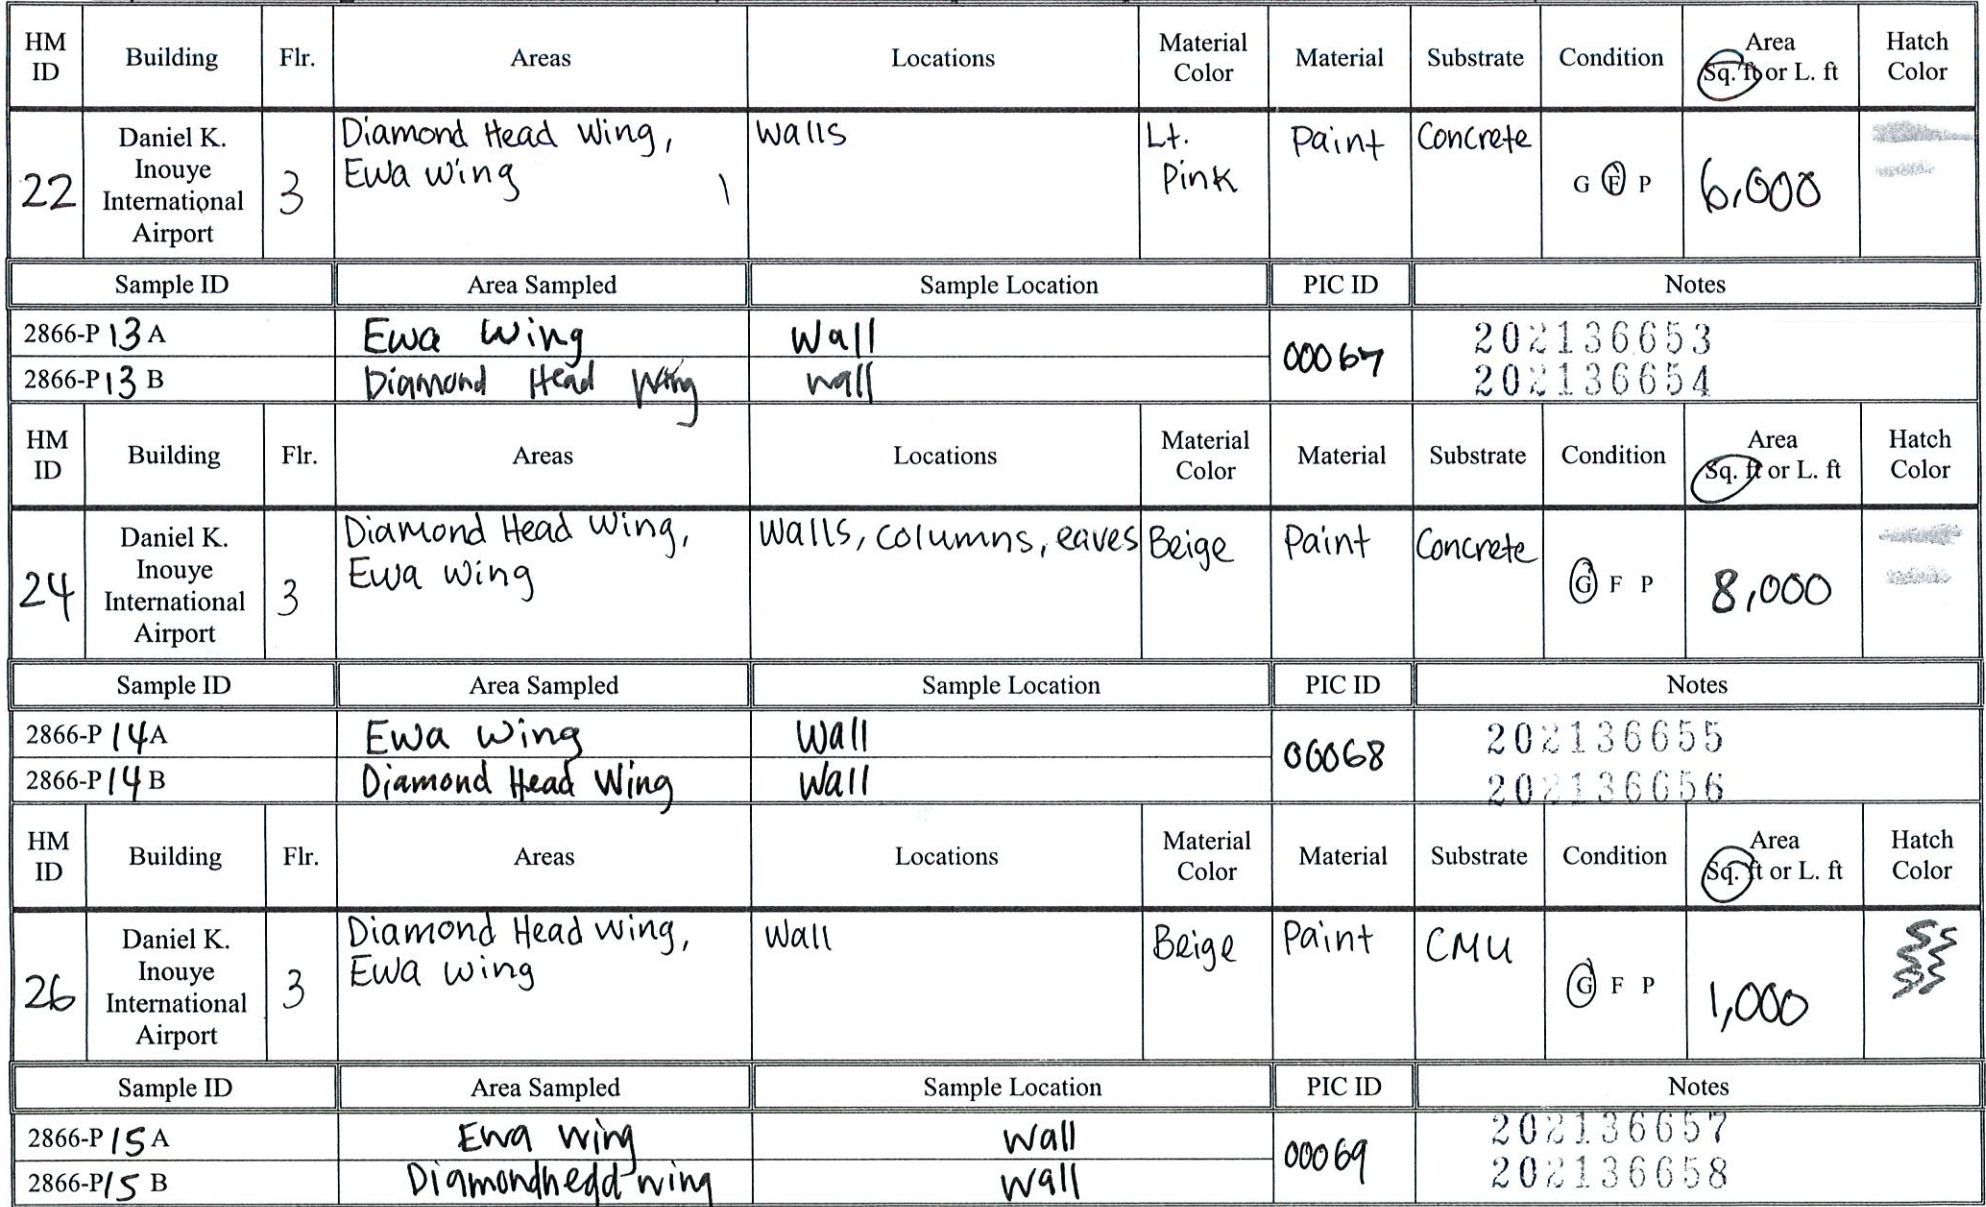 HM ID Building Flr. Areas Locations Material Color Material Substrate Condition Area Sq. ft or L. ft Hatch Color
22 Daniel K. Inouye International Airport 3 Diamond Head Wing, Ewa Wing Walls Lt. Pink Paint Concrete G F P 6,000
Sample ID Area Sampled Sample Location PIC ID Notes
2866-P 13 A Ewa Wing Wall 00067 202136653
2866-P 13 B Diamond Head Wing wall 202136654
HM ID Building Flr. Areas Locations Material Color Material Substrate Condition Area Sq. ft or L. ft Hatch Color
24 Daniel K. Inouye International Airport 3 Diamond Head Wing, Ewa Wing Walls, columns, eaves Beige Paint Concrete G F P 8,000
Sample ID Area Sampled Sample Location PIC ID Notes
2866-P 14 A Ewa Wing Wall 00068 202136655
2866-P 14 B Diamond Head Wing Wall 202136656
HM ID Building Flr. Areas Locations Material Color Material Substrate Condition Area Sq. ft or L. ft Hatch Color
26 Daniel K. Inouye International Airport 3 Diamond Head Wing, Ewa Wing Wall Beige Paint CMU G F P 1,000
Sample ID Area Sampled Sample Location PIC ID Notes
2866-P 15 A Ewa Wing Wall 00069 202136657
2866-P 15 B Diamondhead wing Wall 202136658